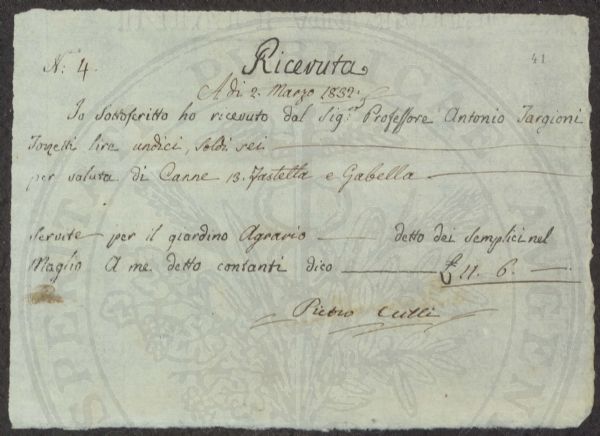 N: 4.
41
Ricevuta
A dì 2. Marzo 1832.
Io Sottoscritto ho ricevuto dal Sig: Professore Antonio Targioni
Tozzetti lire undici, soldi sei
per valuta di Canne 13. e Gabella
servite per il giardino Agrario detto dei Semplici nel
Maglio A me detto contanti dico £ 11. 6.
Pietro